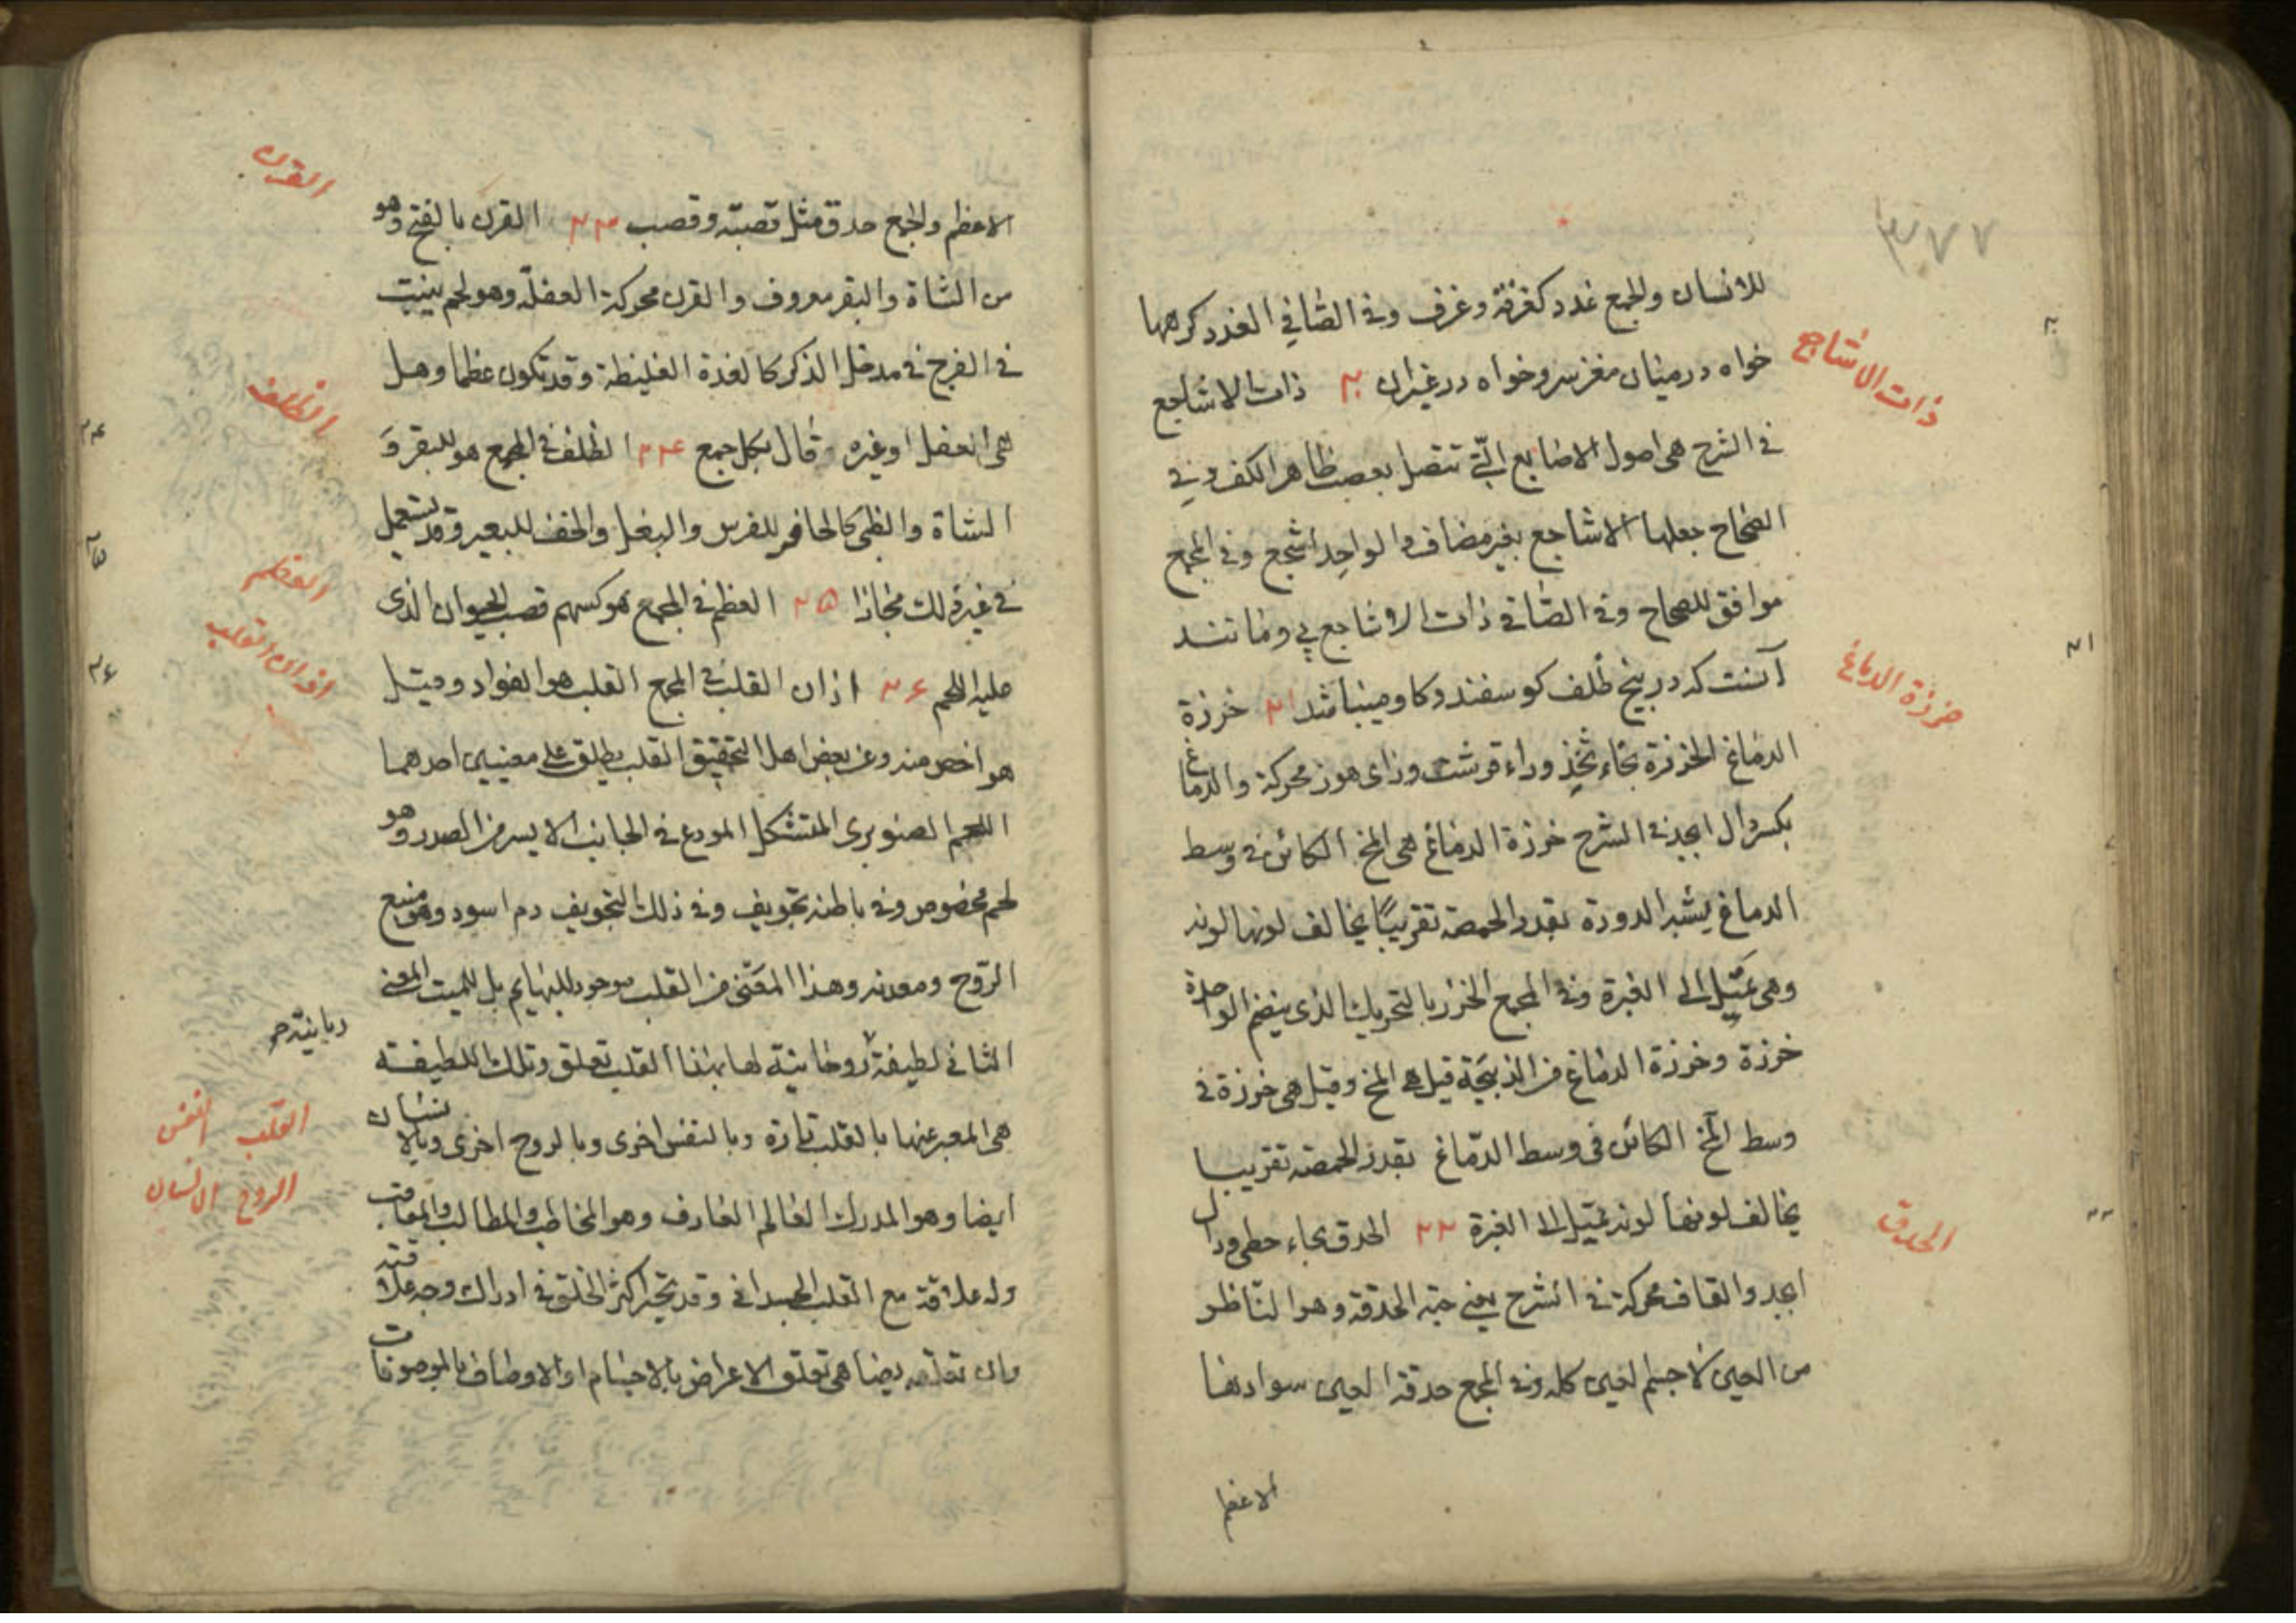 ٣٧٧
للانسان والجمع غدد كغرفة وغرف وفى الصافي الغدد كرهها
خواه در ميان مغز سر وخواه در غير ان ٢٠ ذات الاشاجع
ذات الاشاجع
فى الشرح هى اصول الاصابع التى تتصل بعصب ظاهر الكف وفى
الصحاح جعلها الاشاجع بغير مضاف والواحد اشجع وفى المجمع
موافق للصحاح وفى الصافى ذات الاشاجع پى ومانند
آنست كه در بيخ ظلف كوسفند وكاو ميباشد ٢١ خرزة
خرزة الدماغ
٢١
الدماغ الخرزة بخاء ثخذ وراء قرشت وزاى هوز محركة والدماغ
بكسر دال ابجد فى الشرح خرزة الدماغ هى المخ الكائن فى وسط
الدماغ يشبه الدودة بقدر الحمصة تقريبًا يخالف لونها لونه
وهى تميل الى الغبرة وفى المجمع الخرز بالتحريك الذى ينضم الواحدة
خرزة وخرزة الدماغ من الذبيحة قيل هى المخ وقيل هى خرزة فى
وسط المخ الكائن فى وسط الدماغ بقدر الحمصة تقريبا
يخالف لونها لونه تميل الى الغبرة ٢٢ الحدق بحاء حطى ودال
الحدق
٢٢
ابجد والقاف محركة فى الشرح يعنى حبة الحدقة وهو الناظر
من العين لا جسم العين كله وفى المجمع حدقة العين سوادها
الاعظم
القرن
الاعظم والجمع حدق مثل قصبة وقصب ٢٣ القرن بالفتح وهو
من الشاة والبقر معروف والقرن محركة العفلة وهو لحم ينبت
فى الفرج فى مدخل الذكر كالغدة الغليظة وقد تكون عظما وهل
الظلف
هى العفل او غيره قال بكل جمع ٢۴ الظلف فى المجمع هو للبقر و
٢۴
الشاة والظبى كالحافر للفرس والبغل والخف للبعير وقد يستعمل
٢۵
العظم
فى غير ذلك مجازا ٢۵ العظم فى المجمع هو كسهم قصب الحيوان الذى
عليه اللحم ٢۶ اذان القلب فى المجمع القلب هو الفواد وقيل
اذان القلب
٢۶
هو اخص منه وعن بعض اهل التحقيق القلب يطلق على معنيين احدهما
اللحم الصنوبرى المتشكل المودع فى الجانب الايسر من الصدر وهو
لحم مخصوص وفى باطنه تجويف وفى ذلك التجويف دم اسود وهو منبع
الروح ومعدنه وهذا المعنى من القلب موجود للبهايم بل للميت المعنى
ربانية صح
الثانى لطيفة روحانية لها بهذا القلب تعلق وتلك اللطيفة
هى المعبر عنها بالقلب تارة وبالنفس اخرى وبالروح اخرى وبالانسان
القلب النفس
الروح الانسان
ايضا وهو المدرك العالم العارف وهو المخاطب والمطالب والمعاقب
وله علاقة مع القلب الجسدانى وقد تحير اكثر الخلق فى ادراك وجه علاقته
وان تعلقه يضاهى تعلق الاعراض بالاجسام او الاوصاف بالموصوفات